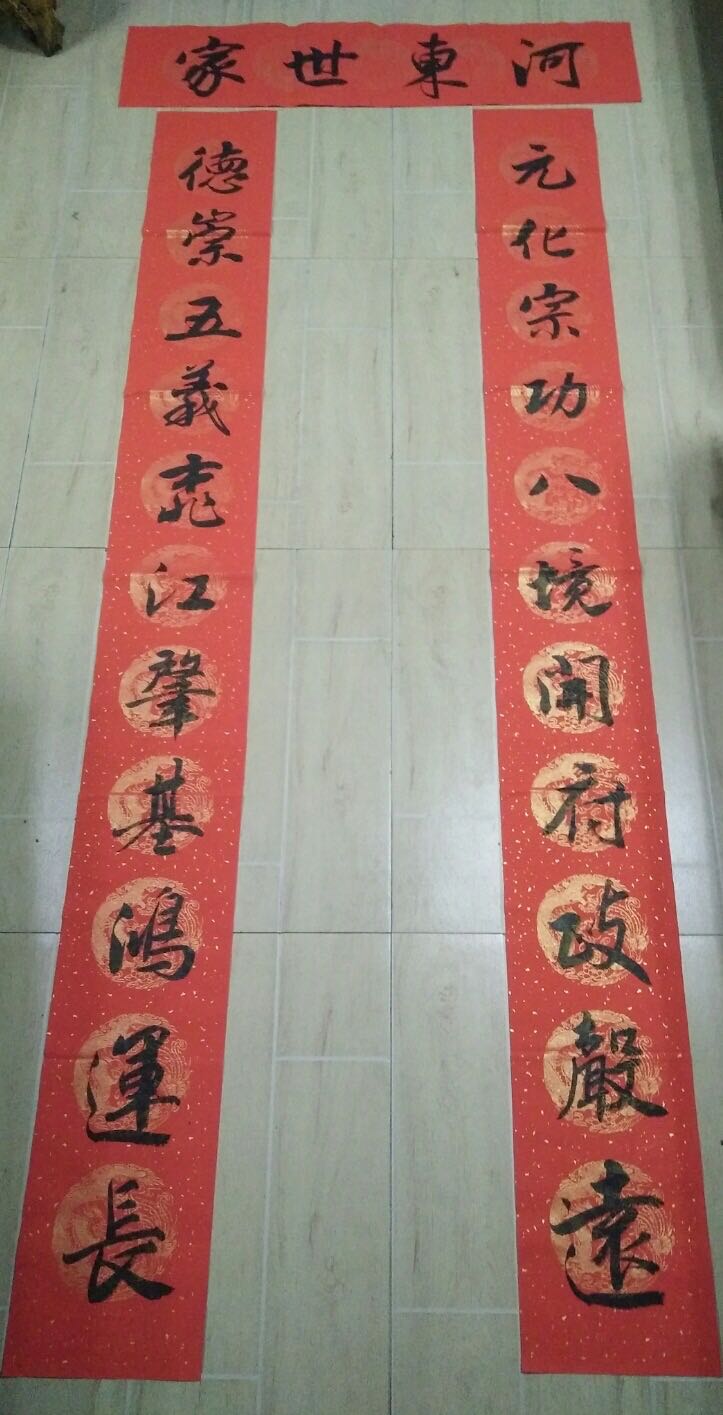 河東世家
元化宗功八境開府政嚴遠
德崇五義桃江肇基鴻運長